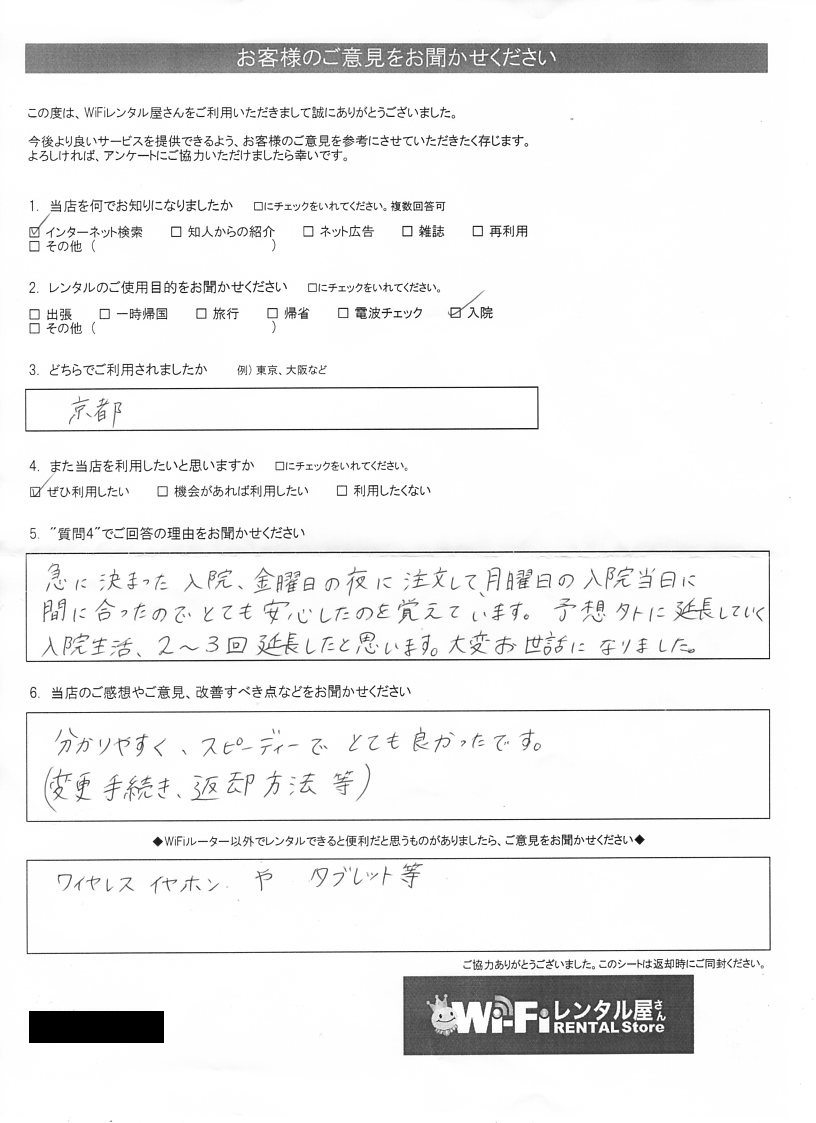 お客様のご意見をお聞かせください
この度は、WiFiレンタル屋さんをご利用いただきまして誠にありがとうございました。
今後より良いサービスを提供できるよう、お客様のご意見を参考にさせていただきたく存じます。
よろしければ、アンケートにご協力いただけましたら幸いです。
1. 当店を何でお知りになりましたか □にチェックをいれてください。複数回答可
☑ インターネット検索 □ 知人からの紹介 □ ネット広告 □ 雑誌 □ 再利用
□ その他 ( )
2. レンタルのご使用目的をお聞かせください □にチェックをいれてください。
□ 出張 □ 一時帰国 □ 旅行 □ 帰省 □ 電波チェック ☑ 入院
□ その他 ( )
3. どちらでご利用されましたか 例) 東京、大阪など
京都
4. また当店を利用したいと思いますか □にチェックをいれてください。
☑ ぜひ利用したい □ 機会があれば利用したい □ 利用したくない
5. "質問4"でご回答の理由をお聞かせください
急に決まった入院、金曜日の夜に注文して、月曜日の入院当日に
間に合ったのでとても安心したのを覚えています。 予想外に延長していく
入院生活、2〜3回延長したと思います。大変お世話になりました。
6. 当店のご感想やご意見、改善すべき点などをお聞かせください
分かりやすく、スピーディーでとても良かったです。
(変更手続き、返却方法等)
◆WiFiルーター以外でレンタルできると便利だと思うものがありましたら、ご意見をお聞かせください◆
ワイヤレスイヤホン や タブレット等
ご協力ありがとうございました。このシートは返却時にご同封ください。
Wi-Fiレンタル屋さん
RENTAL Store